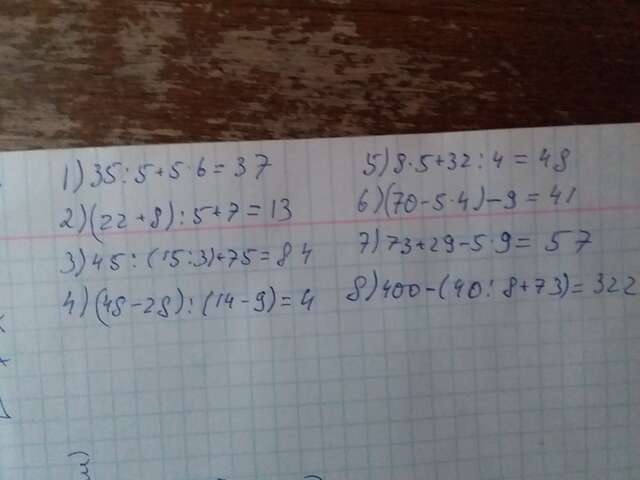 1) 35:5+5·6=37
2) (22+8):5+7=13
3) 45:(15:3)+75=84
4) (45-25):(14-9)=4
5) 8·5+32:4=48
6) (70-5·4)-9=41
7) 73+29-5·9=57
8) 400-(40:8+73)=322